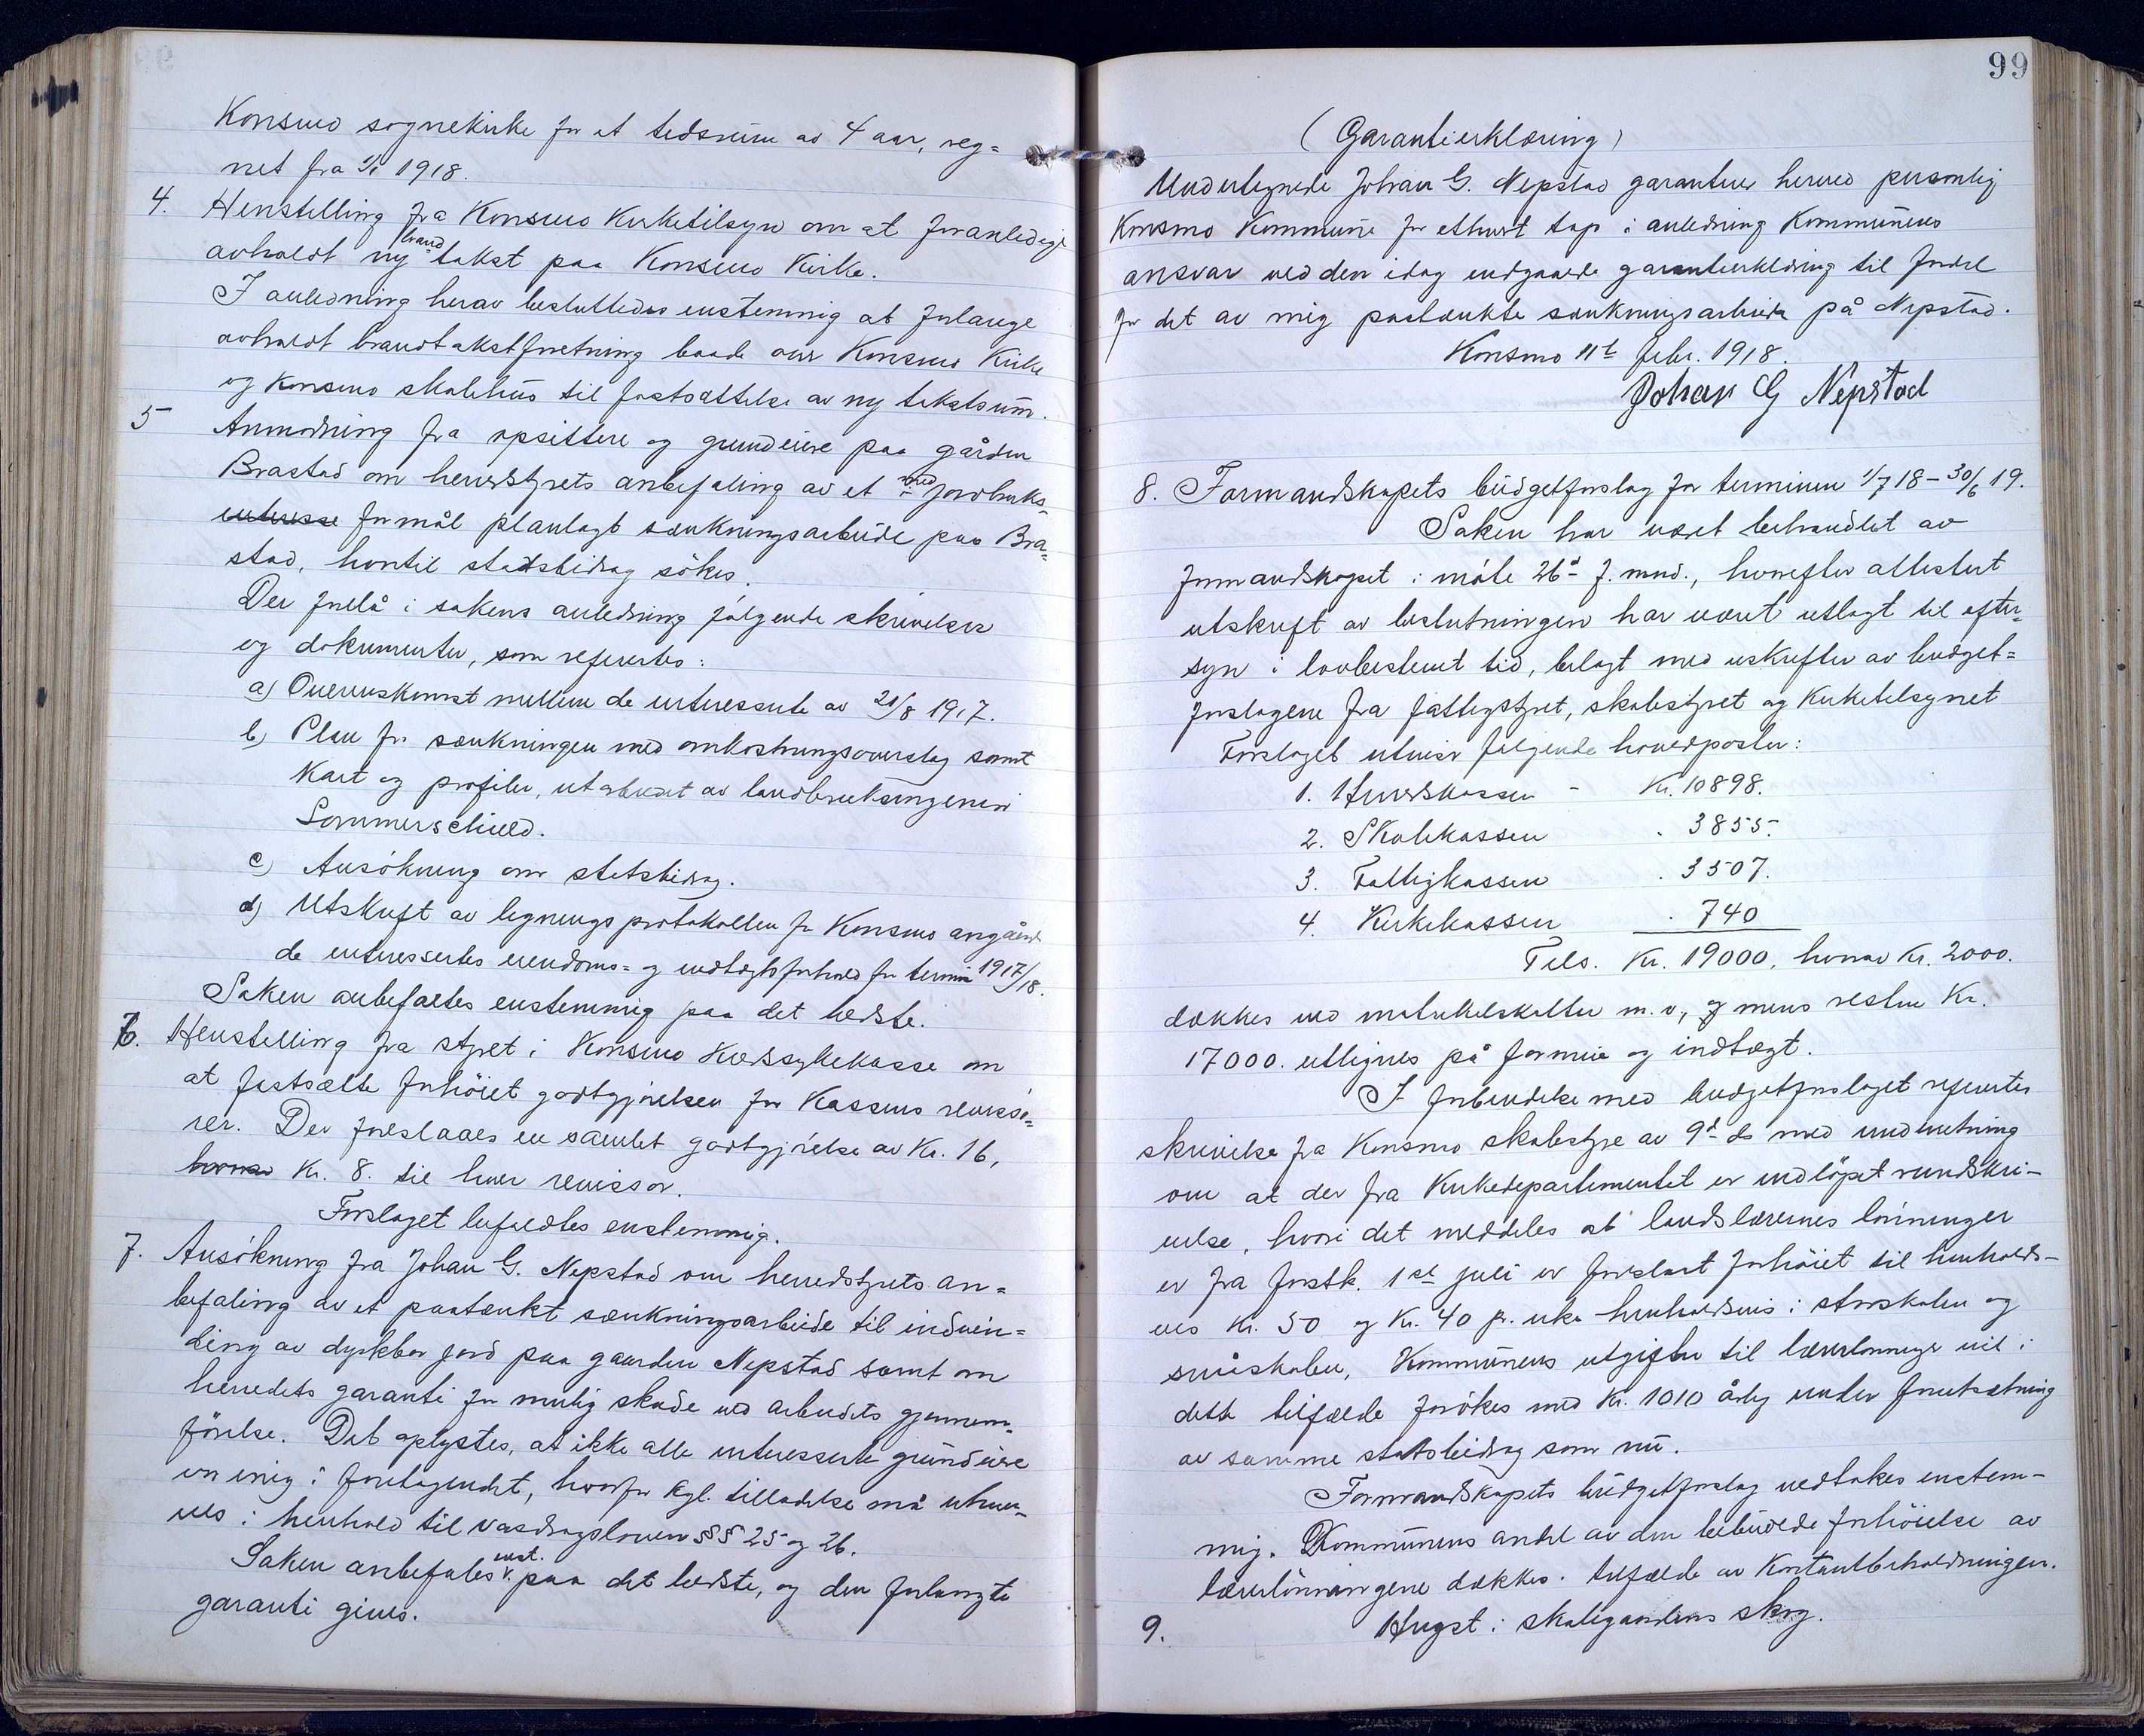 Konsmo sognekirke for et tidsrum av 4 aar, reg=
net fra 1/1 1918.
4. Henstilling fra Konsmo Kirketilsyn om at foranledige
avholdt ny brandtakst paa Konsmo Kirke.
I anledning herav besluttedes enstemmig at forlange
avholdt brandtakstforretning baade over Konsmo Kirke
og Konsmo skolehus til fastsættelse av ny takstsum.
5 Anmodning fra opsittere og grundeiere paa gården
Brastad om herredstyrets anbefaling av et med jordbruks-
interesse formål planlagt sænkningsarbeide paa Bra=
stad, hvortil statsbidrag sökes.
Der forelå i sakens anledning følgende skrivelser
og dokumenter, som refertes:
a) Overenskomst mellem de interesserte av 21/8 1917.
b) Plan for sænkningen med omkostningsoverslag samt
Kart og profiler, utarbeidet av landbruksingeniør
Sommerschield.
c) Ansökning om statsbidrag.
d) Utskrift av ligningsprotokollen for Konsmo angående
de interessertes eiendoms= og indtægtsforhold for termin 1917/18.
Saken anbefaltes enstemmig paa det bedste.
6. Henstilling fra styret i Konsmo Kredssykekasse om
at fastsætte forhöiet godtgjørelsen for Kassens reviso=
rer. Der foreslaaes en samlet godtgjørelse av Kr. 16,
hvorav Kr. 8. til hver revisor.
Forslaget bifaldtes enstemmig.
7. Ansökning fra Johan G. Nepstad om herredstyrets an=
befaling av et paatænkt sænkningsarbeide til indvin=
ding av dyrkbar jord paa gaarden Nepstad samt om
herredets garanti for mulig skade ved arbeidets gjennem-
förelse. Det oplystes, at ikke alle interesserte grundeiere
er enig i foretagendet, hvorfor kgl. tilladelse må utvir-
kes i henhold til vasdragsloven §§ 25 og 26.
Saken anbefales enst. paa det bedste, og den forlangte
garanti gives.
99
(Garantierklæring)
Undertegnede Johan G. Nepstad garanterer herved personlig
Konsmo Kommune for ethvert tap i anledning Kommunens
ansvar ved den idag indgaaede garantierklæring til fordel
for det av mig paatænkte sænkningsarbeide på Nepstad.
Konsmo 11te febr. 1918.
Johan G Nepstad
8. Formandskapets budgetforslag for terminen 1/7 18 - 30/6 19.
Saken har været behandlet av
formandskapet i møte 26d f. mnd., hvorefter attestert
utskrift av beslutningen har været utlagt til efter=
syn i lovbestemt tid, belagt med uskrifter av budget=
forslagene fra fattigstyret, skolestyret og Kirketilsynet
Forslaget utviser følgende hovedposter:
1. Herredskassen - Kr. 10898.
2. Skolekassen . 3855.
3. Fattigkassen . 3507.
4. Kirkekassen . 740
Tils. Kr. 19000, hvorav Kr. 2000.
dækkes ved matrikelskatter m. v, og mens resten Kr.
17000. utlignes på formue og indtægt.
I forbindelse med budgetforslaget refertes
skrivelse fra Konsmo skolestyre av 9d ds med indberetning
om at der fra Kirkedepartementet er indlöpet rundskri-
velse, hvori det meddeles at landslærernes lönninger
er fra førstk. 1ste juli er foreslaat forhöiet til henholds-
vis Kr. 50 og Kr. 40 pr. uke henholdsvis i storskolen og
småskolen, Kommunens utgifter til lærerlønninger vil i
dette tilfælde forökes med Kr. 1010 årlig under forutsætning
av samme statsbidrag som nu.
Formandskapets budgetforslag vedtakes enstem-
mig. Kommunens andel av den bebudede forhöielse av
lærerlönningene dækkes i tilfælde av Kontantbeholdningen.
9. Hugst i skolegaardens skog.